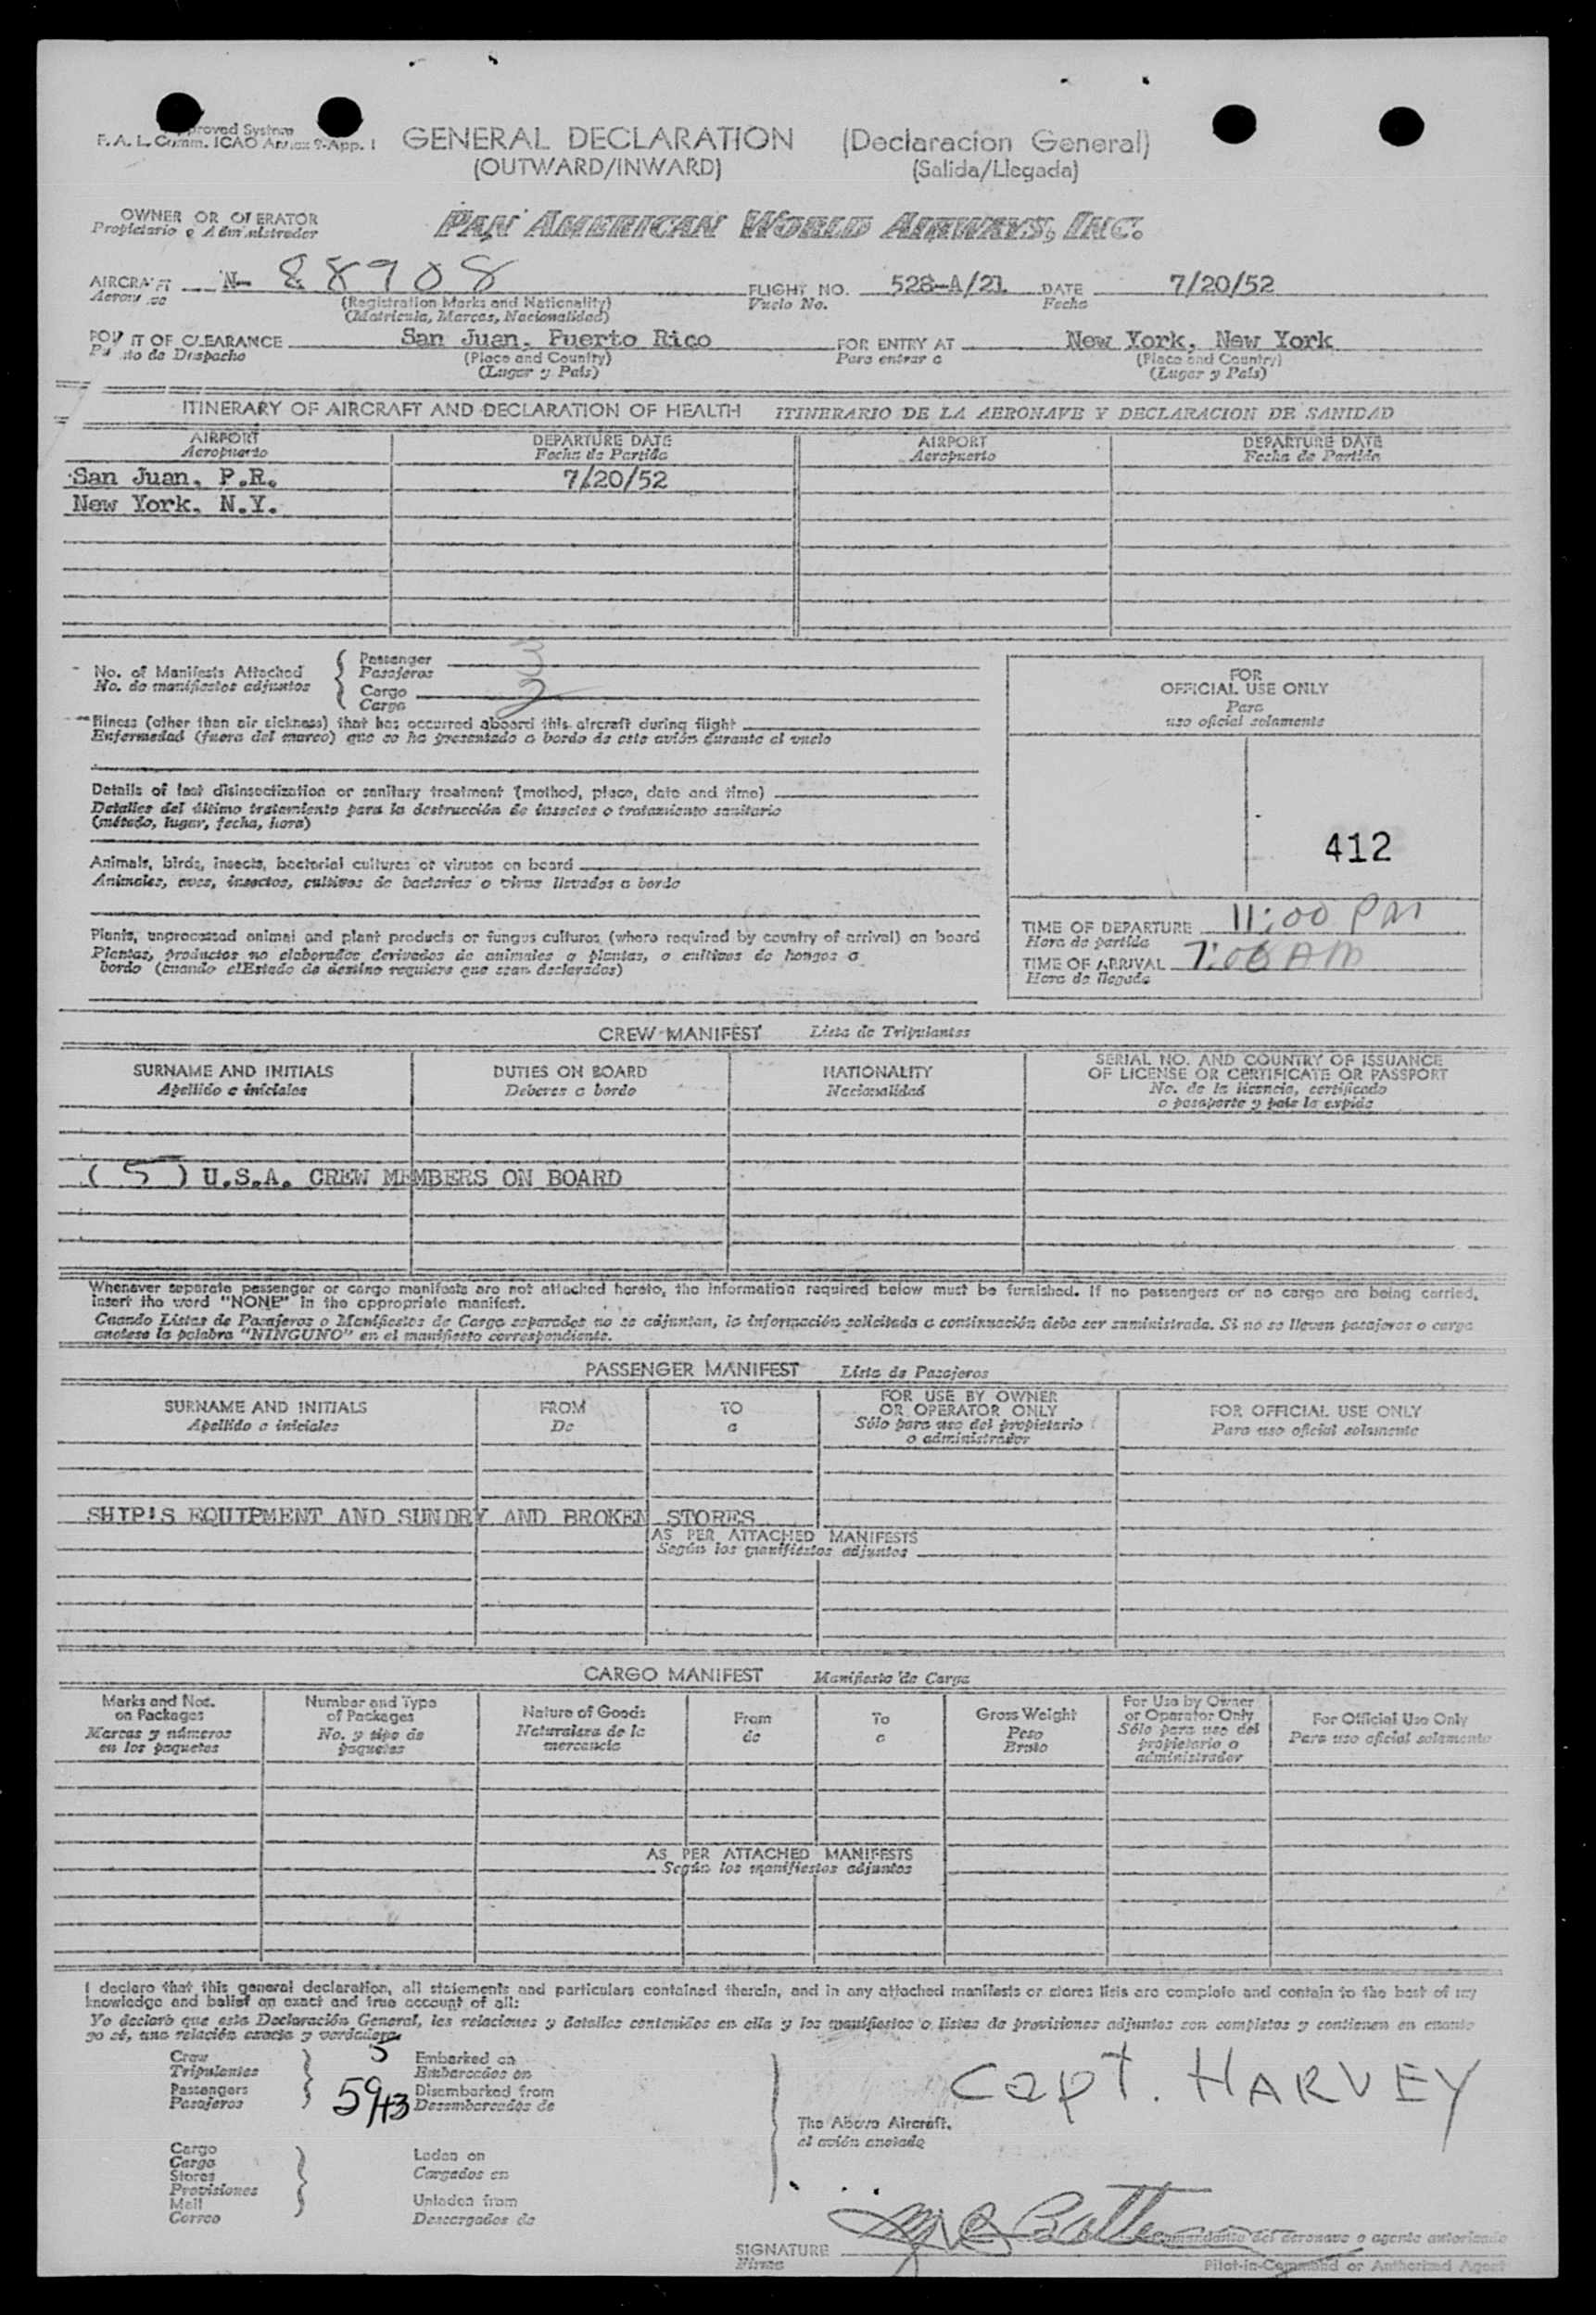 Approved System
F. A. L. Comm. ICAO Annex 9-App. 1
GENERAL DECLARATION (Declaracion General)
(OUTWARD/INWARD) (Salida/Llegada)
OWNER OR OPERATOR
Propietario o Administrador
PAN AMERICAN WORLD AIRWAYS, INC.
AIRCRAFT N- 88908 FLIGHT NO. 528-A/21 DATE 7/20/52
Aeronave (Registration Marks and Nationality) Vuelo No. Fecha
(Matricula, Marcas, Nacionalidad)
POINT OF CLEARANCE San Juan, Puerto Rico FOR ENTRY AT New York, New York
Punto de Despacho (Place and Country) Para entrar a (Place and Country)
(Lugar y País) (Lugar y País)
ITINERARY OF AIRCRAFT AND DECLARATION OF HEALTH ITINERARIO DE LA AERONAVE Y DECLARACION DE SANIDAD
AIRPORT DEPARTURE DATE AIRPORT DEPARTURE DATE
Aeropuerto Fecha de Partida Aeropuerto Fecha de Partida
San Juan, P.R. 7/20/52
New York, N.Y.
No. of Manifests Attached
No. de manifiestos adjuntos
Passenger 3
Pasajeros
Cargo 2
Carga
Illness (other than air sickness) that has occurred aboard this aircraft during flight
Enfermedad (fuera del mareo) que se ha presentado a bordo de este avión durante el vuelo
Details of last disinsectization or sanitary treatment (method, place, date and time)
Detalles del último tratamiento para la destrucción de insectos o tratamiento sanitario
(método, lugar, fecha, hora)
Animals, birds, insects, bacterial cultures or viruses on board
Animales, aves, insectos, cultivos de bacterias o virus llevados a bordo
Plants, unprocessed animal and plant products or fungus cultures (where required by country of arrival) on board
Plantas, productos no elaborados derivados de animales o plantas, o cultivos de hongos a
bordo (cuando el Estado de destino requiere que sean declarados)
FOR
OFFICIAL USE ONLY
Para
uso oficial solamente
412
TIME OF DEPARTURE 11:00 PM
Hora de partida
TIME OF ARRIVAL 7:06 AM
Hora de llegada
CREW MANIFEST Lista de Tripulantes
SURNAME AND INITIALS DUTIES ON BOARD NATIONALITY SERIAL NO. AND COUNTRY OF ISSUANCE
OF LICENSE OR CERTIFICATE OR PASSPORT
Apellido e iniciales Deberes a bordo Nacionalidad No. de la licencia, certificado
o pasaporte y país lo expide
( 5 ) U.S.A. CREW MEMBERS ON BOARD
Whenever separate passenger or cargo manifests are not attached hereto, the information required below must be furnished. If no passengers or no cargo are being carried,
insert the word "NONE" in the appropriate manifest.
Cuando Listas de Pasajeros o Manifiestos de Cargo separados no se adjuntan, la información solicitada a continuación debe ser suministrada. Si no se llevan pasajeros o carga
anotese la palabra "NINGUNO" en el manifiesto correspondiente.
PASSENGER MANIFEST Lista de Pasajeros
SURNAME AND INITIALS FROM TO FOR USE BY OWNER
OR OPERATOR ONLY FOR OFFICIAL USE ONLY
Apellido e iniciales De a Sólo para uso del propietario
o administrador Para uso oficial solamente
SHIP'S EQUIPMENT AND SUNDRY AND BROKEN STORES
AS PER ATTACHED MANIFESTS
Según los manifiestos adjuntos
CARGO MANIFEST Manifiesto de Carga
Marks and Nos.
on Packages
Marcas y números
en los paquetes
Number and Type
of Packages
No. y tipo de
paquetes
Nature of Goods
Naturaleza de la
mercancía
From
de
To
a
Gross Weight
Peso
Bruto
For Use by Owner
or Operator Only
Sólo para uso del
propietario o
administrador
For Official Use Only
Para uso oficial solamente
AS PER ATTACHED MANIFESTS
Según los manifiestos adjuntos
I declare that this general declaration, all statements and particulars contained therein, and in any attached manifests or stores lists are complete and contain to the best of my
knowledge and belief an exact and true account of all:
Yo declaro que esta Declaración General, las relaciones y detalles contenidos en ella y los manifiestos o listas de provisiones adjuntos son completos y contienen en cuanto
yo sé, una relación exacta y verdadera.
Crew 5 Embarked on
Tripulantes Embarcados en
Passengers 59/13 Disembarked from
Pasajeros Desembarcados de
Capt. HARVEY
The Above Aircraft,
el avión anotado
Cargo
Carga
Stores
Provisiones
Mail
Correo
Laden on
Cargados en
Unladen from
Descargados de
SIGNATURE
Firma
Comandante del aeronave o agente autorizado
Pilot-in-Command or Authorized Agent